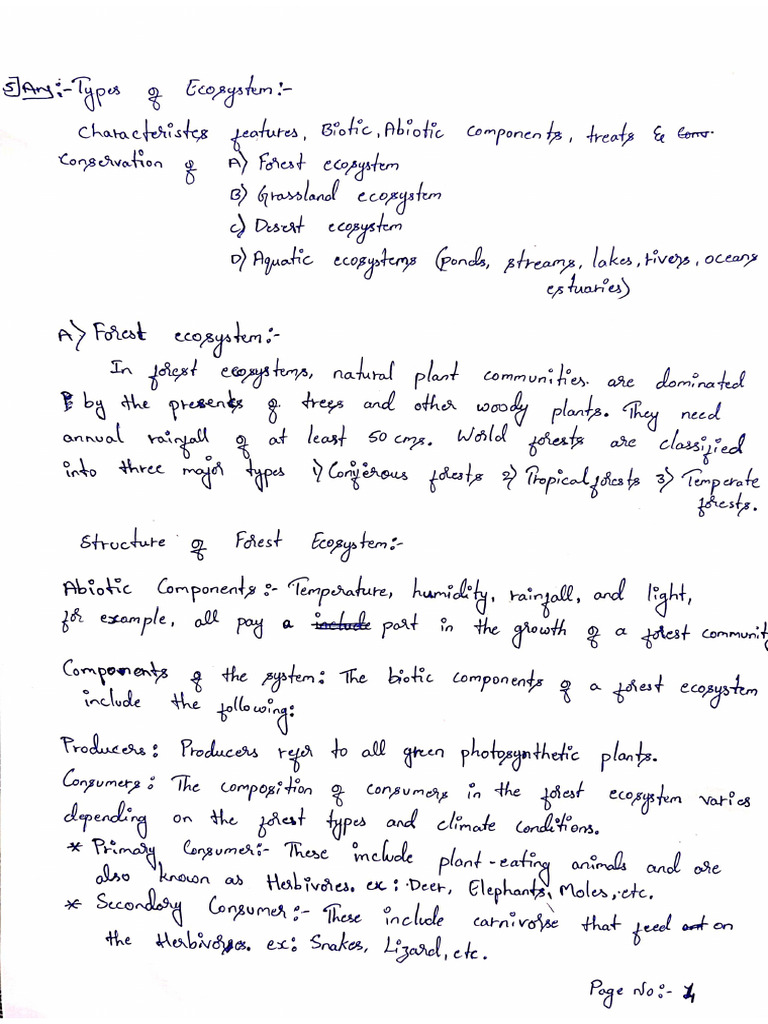 5] Ans:- Types of Ecosystem:-
Characteristcs features, Biotic, Abiotic components, treats &
Conservation of A) Forest ecosystem
B) Grassland ecosystem
C) Desert ecosystem
D) Aquatic ecosystems (ponds, streams, lakes, rivers, oceans
estuaries)
A) Forest ecosystem:-
In forest ecosystems, natural plant communities are dominated
by the presents of trees and other woody plants. They need
annual rainfall of at least 50 cms. World forests are classified
into three major types 1) Coniferous forests 2) Tropical forests 3) Temperate
forests.
Structure of Forest Ecosystem:-
Abiotic Components:- Temperature, humidity, rainfall, and light,
for example, all pay a include part in the growth of a forest community
Components of the system: The biotic components of a forest ecosystem
include the following:
Producers: Producers refer to all green photosynthetic plants.
Consumers: The composition of consumers in the forest ecosystem varies
depending on the forest types and climate conditions.
* Primary Consumer:- These include plant-eating animals and are
also known as Herbivores. ex: Deer, Elephants, Moles, etc.
* Secondory Consumer:- These include carnivorse that feed on
the Herbivores. ex: Snakes, Lizard, etc.
Page No:- 1